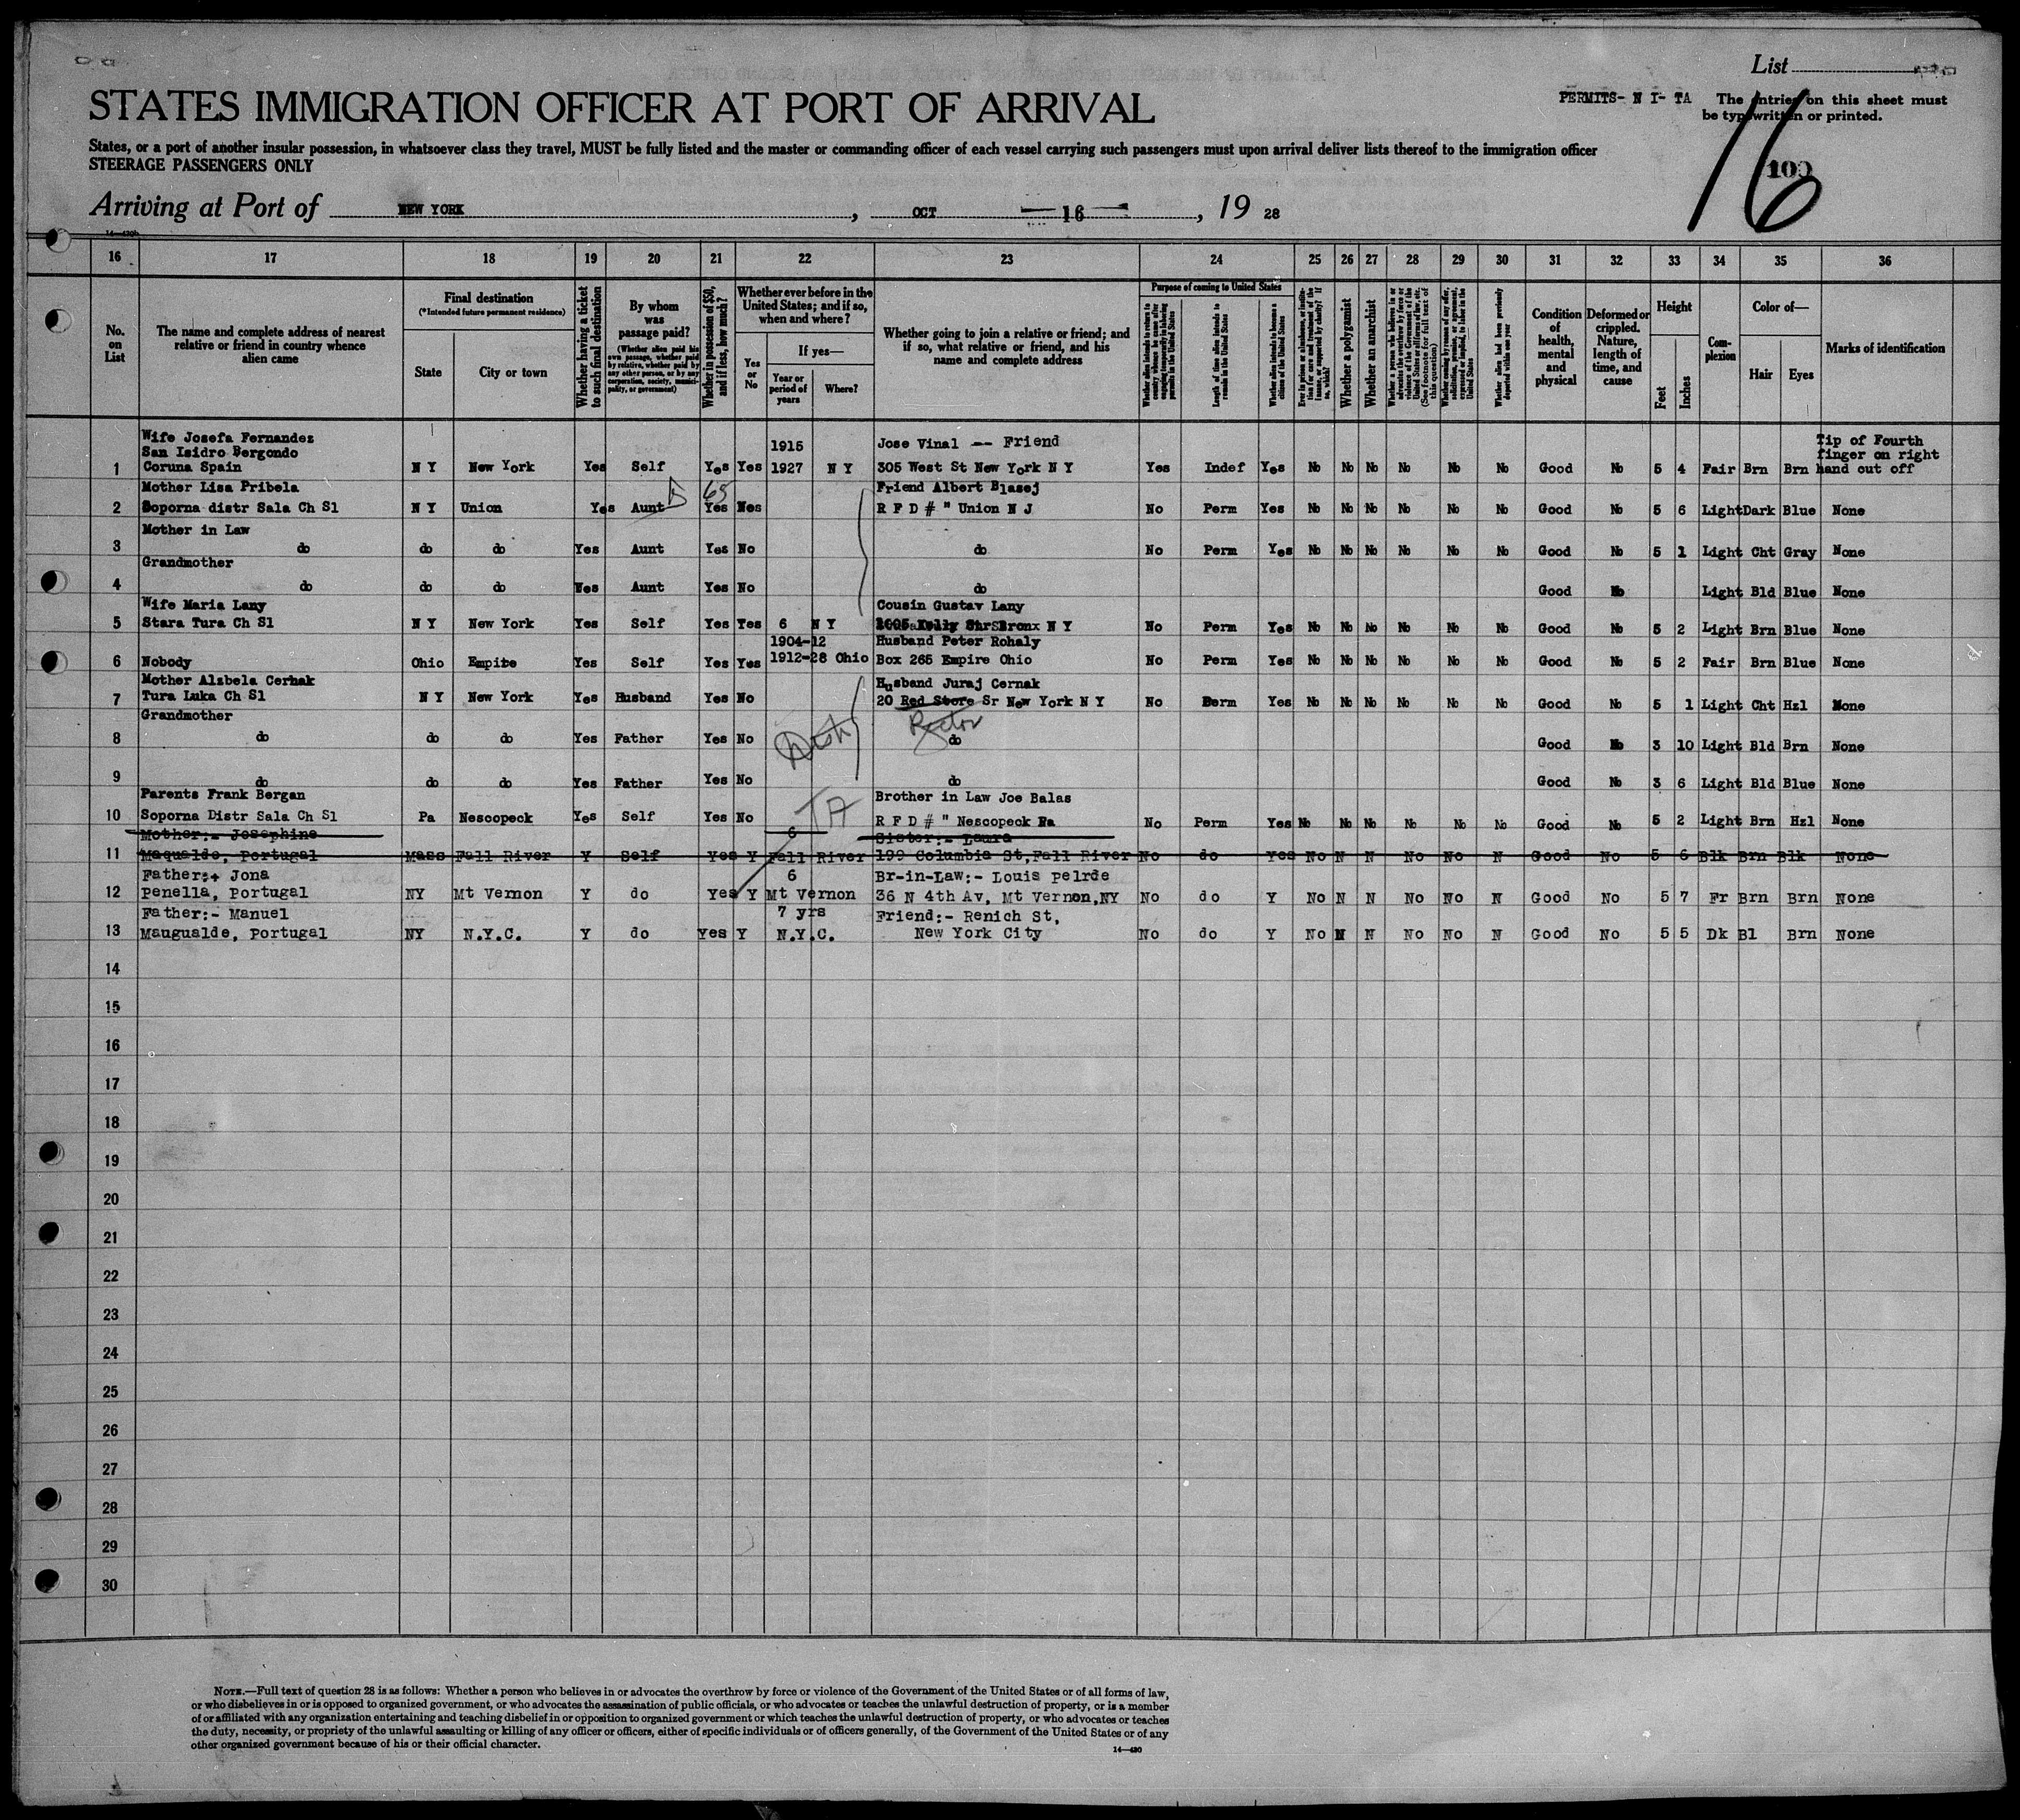 List
STATES IMMIGRATION OFFICER AT PORT OF ARRIVAL
PERMITS- N I- TA
The entries on this sheet must
be typewritten or printed.
States, or a port of another insular possession, in whatsoever class they travel, MUST be fully listed and the master or commanding officer of each vessel carrying such passengers must upon arrival deliver lists thereof to the immigration officer
STEERAGE PASSENGERS ONLY
16
100
Arriving at Port of NEW YORK, OCT 16, 19 28
16 17 18 19 20 21 22 23 24 25 26 27 28 29 30 31 32 33 34 35 36
No. on List
The name and complete address of nearest relative or friend in country whence alien came
Final destination
(*Intended future permanent residence)
State
City or town
Whether having a ticket to such final destination
By whom was passage paid?
(Whether alien paid his own passage, whether paid by relative, whether paid by any other person, or by any corporation, society, municipality, or government)
Whether in possession of $50, and if less, how much?
Whether ever before in the United States; and if so, when and where?
Yes or No
If yes—
Year or period of years
Where?
Whether going to join a relative or friend; and if so, what relative or friend, and his name and complete address
Purpose of coming to United States
Whether alien intends to return to country whence he came after engaging temporarily in laboring pursuits in the United States
Length of time alien intends to remain in the United States
Whether alien intends to become a citizen of the United States
Whether a polygamist
Whether an anarchist
Whether alien had been previously deported within one year
Condition of health, mental and physical
Deformed or crippled. Nature, length of time, and cause
Height
Feet
Inches
Complexion
Color of—
Hair
Eyes
Marks of identification
Wife Josefa Fernandez
San Isidro Bergondo 1915 Jose Vinal -- Friend Tip of Fourth finger on right
1 Coruna Spain N Y New York Yes Self Yes Yes 1927 N Y 305 West St New York N Y Yes Indef Yes No No No No No No Good No 5 4 Fair Brn Brn hand cut off
Mother Lisa Pribela 65 Friend Albert Blasej
2 Soporna distr Sala Ch Sl N Y Union Yes Aunt Yes R F D # " Union N J No Perm Yes No No No No No No Good No 5 6 Light Dark Blue None
Mother in Law
3 do do do Yes Aunt Yes No do No Perm Yes No No No No No No Good No 5 1 Light Cht Gray None
Grandmother
4 do do do Yes Aunt Yes No do Good No Light Bld Blue None
Wife Maria Lany Cousin Gustav Lany
5 Stara Tura Ch Sl N Y New York Yes Self Yes Yes 6 N Y Bronx N Y No Perm Yes No No No No No No Good No 5 2 Light Brn Blue None
1904-12 Husband Peter Rohaly
6 Nobody Ohio Empire Yes Self Yes Yes 1912-28 Ohio Box 265 Empire Ohio No Perm Yes No No No No No No Good No 5 2 Fair Brn Blue None
Mother Alzbela Cernak Husband Juraj Cernak
7 Tura Luka Ch Sl N Y New York Yes Husband Yes No 20 Red Store Sr New York N Y No Perm Yes No No No No No No Good No 5 1 Light Cht Hzl None
Grandmother Rector
8 do do do Yes Father Yes No do Good No 3 10 Light Bld Brn None
9 do do do Yes Father Yes No do Good No 3 6 Light Bld Blue None
Parents Frank Bergan Brother in Law Joe Balas
10 Soporna Distr Sala Ch Sl Pa Nescopeck Yes Self Yes No TA R F D # " Nescopeck Pa No Perm Yes No No No No No No Good No 5 2 Light Brn Hzl None
Mother:- Josephine 6 Sister:- Laura
11 Maqualde, Portugal Mass Fall River Y Self Yes Y Fall River 199 Columbia St, Fall River No do Yes No N N No No N Good No 5 6 Blk Brn Blk None
Father:+ Jona 6 Br-in-Law:- Louis pelrde
12 penella, Portugal NY Mt Vernon Y do Yes Y Mt Vernon 36 N 4th Av, Mt Vernon,NY No do Y No N N No No N Good No 5 7 Fr Brn Brn None
Father:- Manuel 7 yrs Friend:- Renich St,
13 Maugualde, Portugal NY N.Y.C. Y do Yes Y N.Y.C. New York City No do Y No N N No No N Good No 5 5 Dk Bl Brn None
14
15
16
17
18
19
20
21
22
23
24
25
26
27
28
29
30
NOTE.—Full text of question 28 is as follows: Whether a person who believes in or advocates the overthrow by force or violence of the Government of the United States or of all forms of law,
or who disbelieves in or is opposed to organized government, or who advocates the assassination of public officials, or who advocates or teaches the unlawful destruction of property, or is a member
of or affiliated with any organization entertaining and teaching disbelief in or opposition to organized government or which teaches the unlawful destruction of property, or who advocates or teaches
the duty, necessity, or propriety of the unlawful assaulting or killing of any officer or officers, either of specific individuals or of officers generally, of the Government of the United States or of any
other organized government because of his or their official character.
14—430